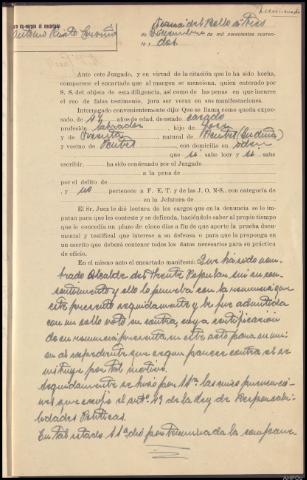 En                    a tres
de Diciembre de mil novecientos cuaren-
ta y dos.
Ante este Juzgado, y en virtud de la citación que le ha sido hecha,
comparece el encartado que al margen se menciona, quien enterado por
S. S. del objeto de esta diligencia, así como de las penas en que incurre
el reo de falso testimonio, jura ser veraz en sus manifestaciones.
Interrogado convenientemente dijo: Que se llama como queda expre-
sado, de 47 años de edad, de estado casado
profesión labrador, hijo de José
y de              natural de
y vecino de              con domicilio en
que si sabe leer y si sabe
escribir,              ha sido condenado por el Juzgado
a la pena de
por el delito de
y no pertenece a F. E. T. y de las J. O. N-S. con categoría de
en la Jefatura de
El Sr. Juez le dió lectura de los cargos que en la denuncia se le im-
putan para que los conteste y se defienda, haciéndole saber al propio tiempo
que le concedía un plazo de cinco días a fin de que aporte la prueba docu-
mental y testifical que interese a su defensa o para que la proponga en
un escrito que deberá contener todos los datos necesarios para su práctica
de oficio.
En el mismo acto el encartado manifiesta: Que ha sido nom-
brado Alcalde del Frente Popular sin su con-
sentimiento y ello lo prueba con la renuncia que
este presentó seguidamente y le fue admitida
con un solo voto en contra, cuya certificación
de su renuncia presenta en este acto para su uni-
ón al expediente que según parece contra el se
instruye por tal motivo.
Seguidamente se hizo por Sª las mismas prevencio-
nes que exige el artº 49 de la Ley de Responsabi-
lidades Políticas.
En tal estado Sª dió por terminada la comparecen-